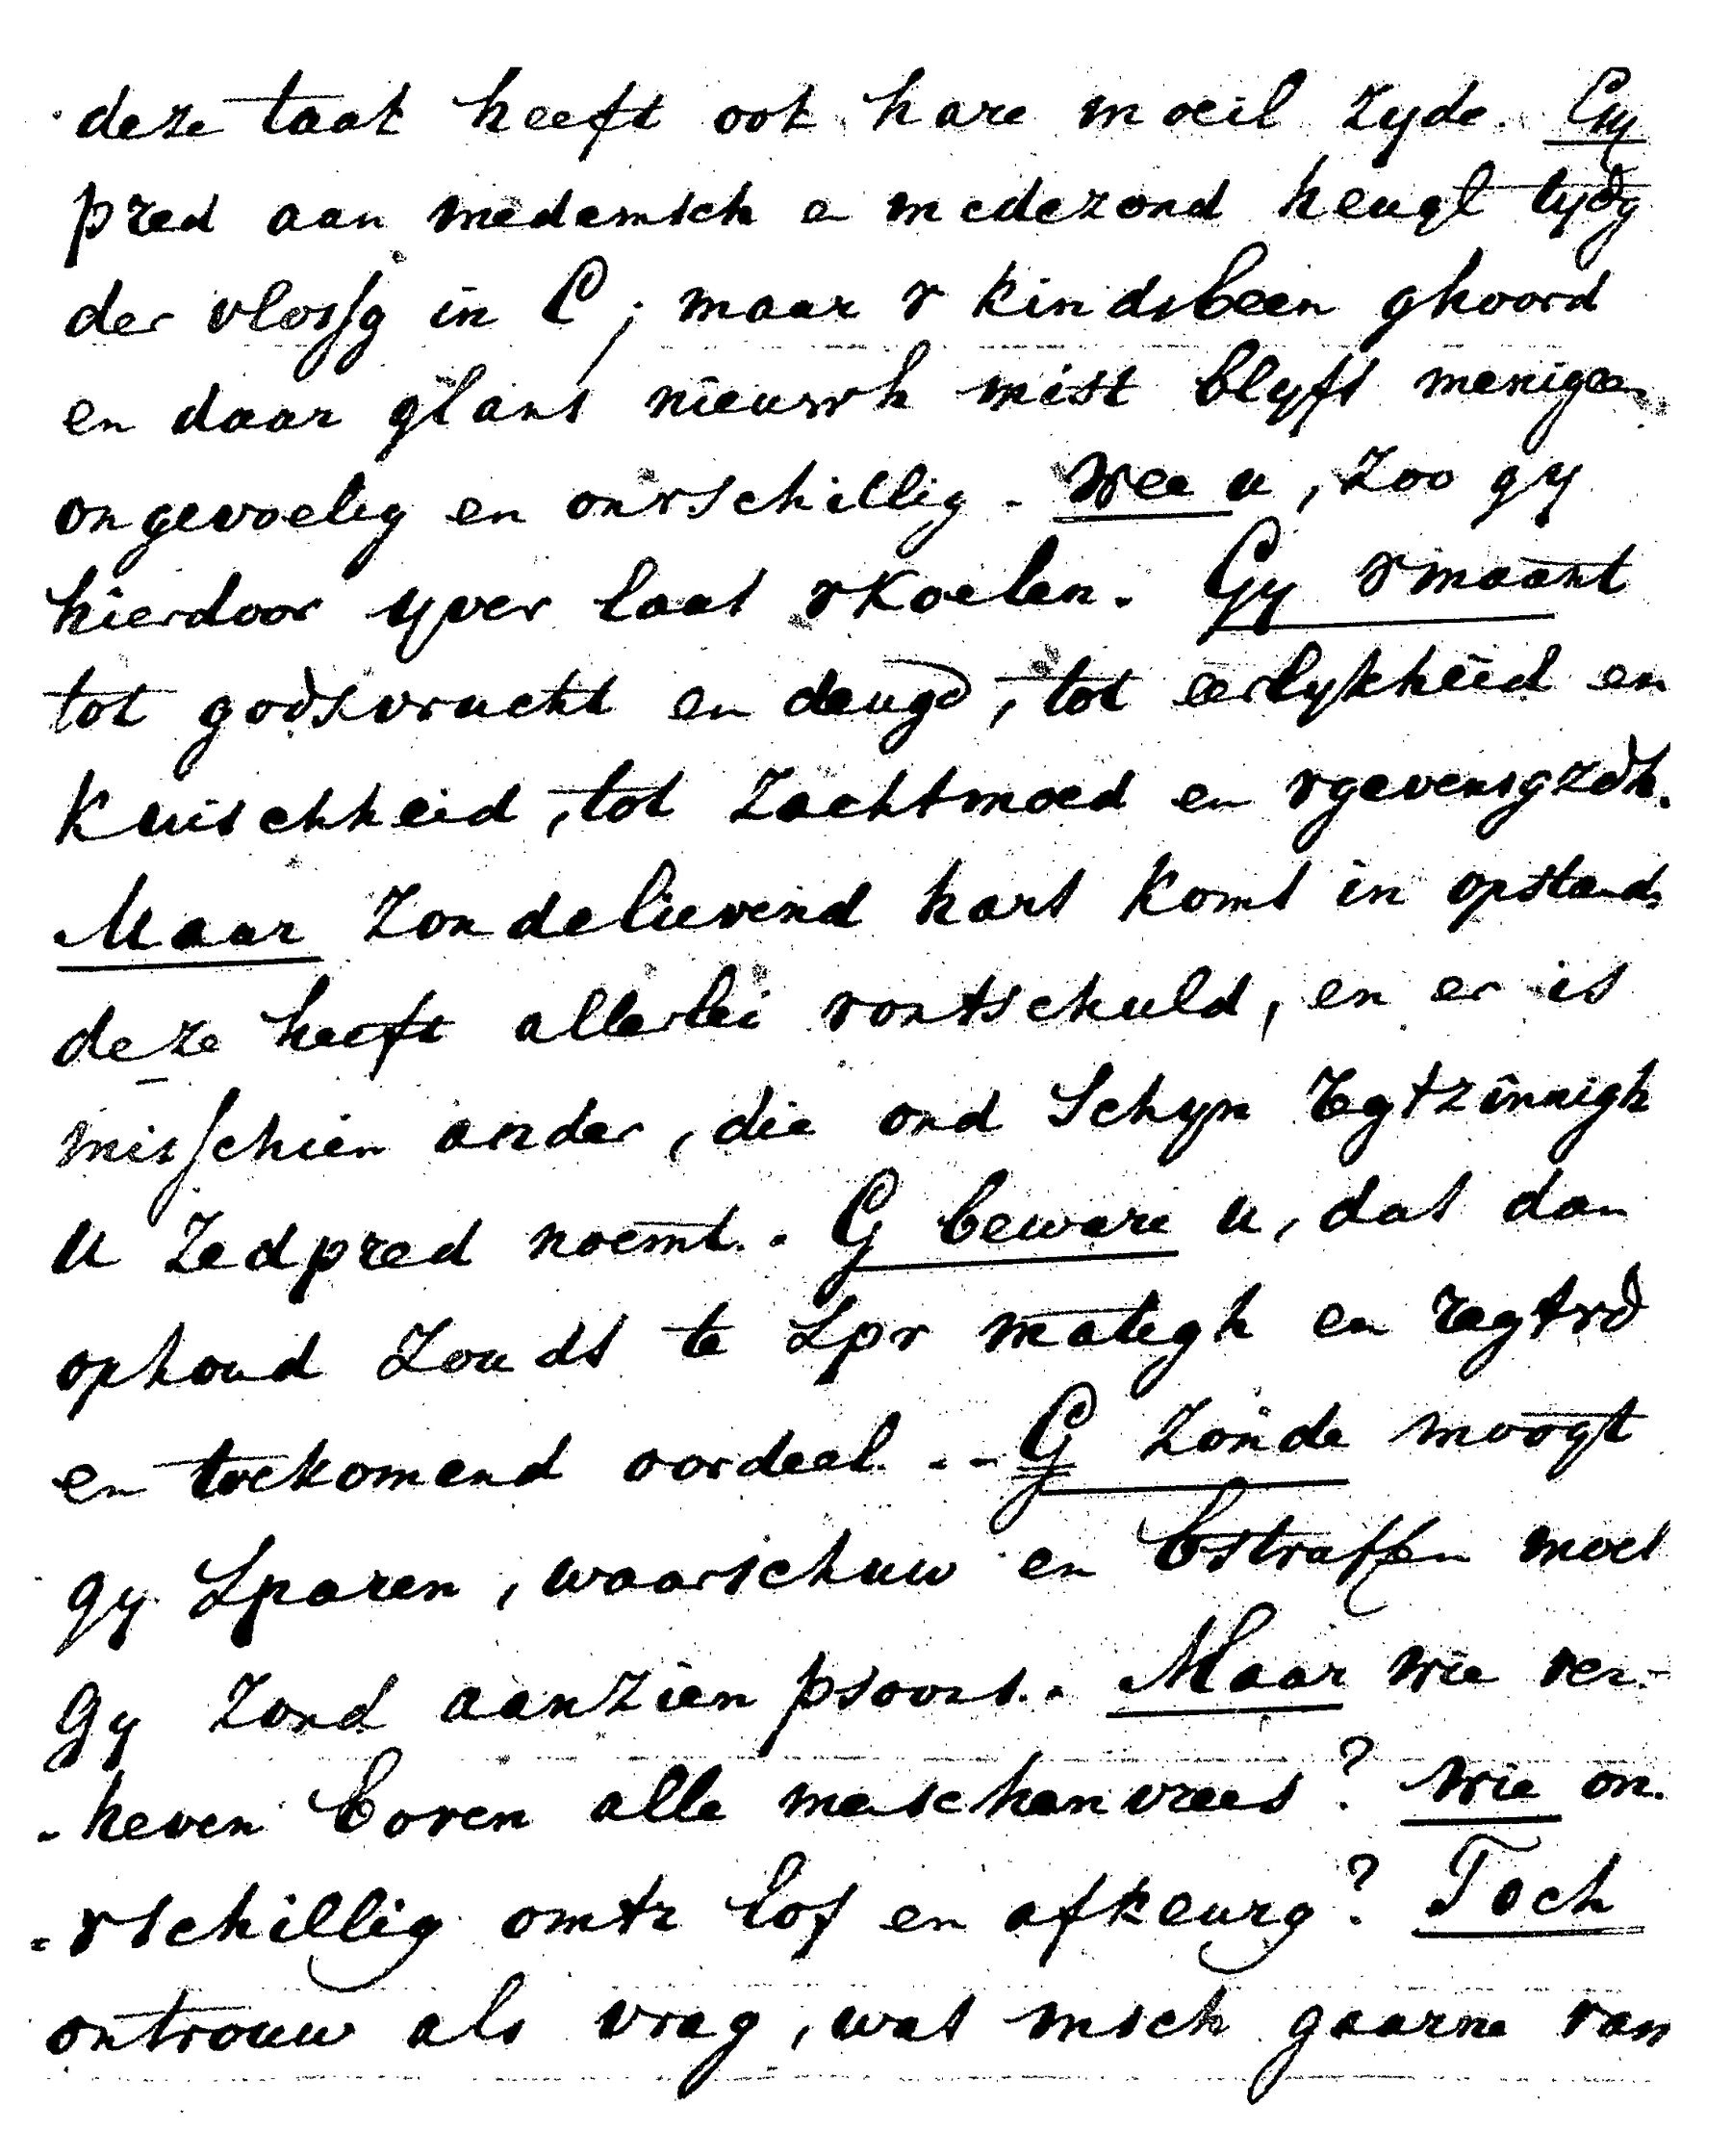 deze taak heeft ook hare moeil zyde. Gy
pred aan medemsch en medezond heugl tydg
der vlossg in C; maar v kindsbeen ghoord
en daar glans nieuwh mist blyft menigeen
ongevoelig en onvschillig. Wee u, zoo gy
hierdoor yver laat vkoelen. Gy vmaant
tot godsvrucht en deugd, tot eerlykheid en
kuischheid, tot zachtmoed en vgevensgzdh.
Maar zondelievend hart komt in opstand,
deze heeft allerlei vontschuld, en er is
misschien ander, die ond schyn regtzinnigh
u zedpred noemt. G beware u, dat dan
ophoud zoudt te spr matigh en regtvd
en toekomend oordeel. -- G zonde moogt
gy sparen, waarschuw en bstraffen moet
gy zond aanzien psoons. Maar wie ver-
-heven boven alle menschenvrees? Wie on-
-vschillig omtr lof en afkeurg? Toch
ontrouw als vrag, wat msch gaarne van